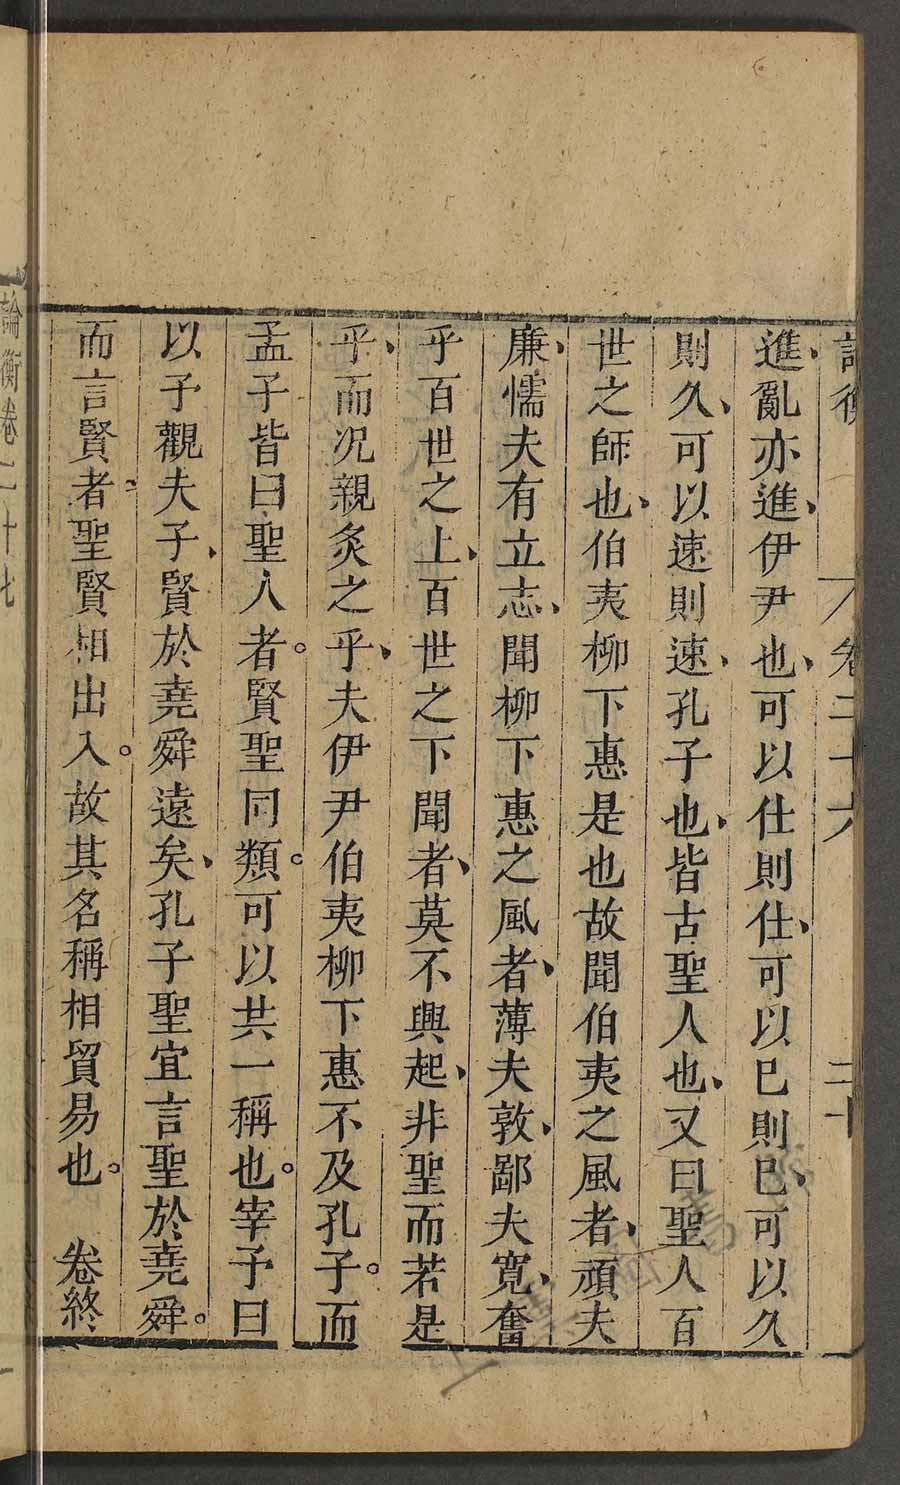 論衡 卷二十六 二十
進、亂亦進、伊尹也、可以仕則仕、可以已則已、可以久
則久、可以速則速、孔子也、皆古聖人也、又曰聖人百
世之師也、伯夷柳下惠是也故聞伯夷之風者、頑夫
廉、懦夫有立志、聞柳下惠之風者、薄夫敦、鄙夫寬、奮
乎百世之上、百世之下聞者、莫不興起、非聖而若是
乎、而况親炙之乎、夫伊尹伯夷柳下惠不及孔子。而
孟子皆曰聖人者。賢聖同類。可以共一稱也。宰予曰
以予觀夫子、賢於堯舜遠矣、孔子聖宜言聖於堯舜。
而言賢者、聖賢相出入。故其名稱相貿易也。 卷終
論衡卷二十七